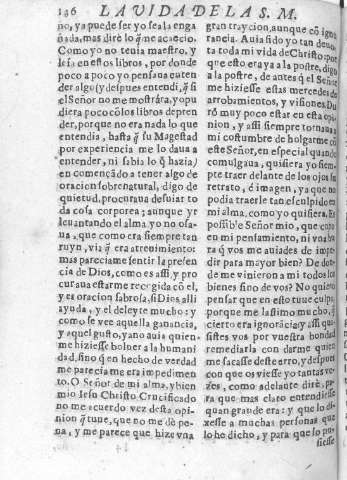 136 LA VIDA DE LA S. M.
no, ya puede ser yo sea la enga
ñada, mas diré lo q̃ me acaecio.
Como yo no tenia maestro, y
leia en estos libros, por donde
poco a poco yo pensaua enten
der algo (y despues entendi, q̃ si
el Señor no me mostrára, yo pu
diera poco cõ los libros depren
der, porque no era nada lo que
entendia, hasta q̃ su Magestad
por experiencia me lo daua a
entender, ni sabia lo q̃ hazia)
en començãdo a tener algo de
oracion sobrenatural, digo de
quietud, procuraua desuiar to
da cosa corporea; aunque yr
leuantando el alma yo no osa-
ua, que como era siempre tan
ruyn, via q̃ era atreuimiento:
mas pareciame sentir la presen
cia de Dios, como es assi, y pro
curaua estarme recogida cõ el,
y es oracion sabrosa, si Dios alli
ayuda, y el deleyte mucho: y
como se vee aquella ganancia,
y aquel gusto, ya no auia quien
me hiziesse boluer a la humani
dad, sino q̃ en hecho de verdad
me parecia me era impedimen
to. O Señor de mi alma, y bien
mio Iesu Christo Crucificado
no me acuerdo vez desta opi
nion q̃ tuue, que no me dè pe-
na, y me parece que hize vna
gran traycion, aunque cõ igno
rancia. Auia sido yo tan deuo
ta toda mi vida de Christo: por
que esto era ya a la postre, digo
a la postre, de antes q̃ el Señor
me hiziesse estas mercedes de
arrobamientos, y visiones. Du
rò muy poco estar en esta opi
nion, y assi siempre tornaua a
mi costumbre de holgarme cõ
este Señor, en especial quando
comulgaua, quisiera yo siem-
pre traer delante de los ojos su
retrato, ô imagen, ya que no
podia traerle tan esculpido en
mi alma, como yo quisiera. Es
possible Señor mio, que cupo
en mi pensamiento, ni vna ho
ra q̃ vos me auiades de impe-
dir para mayor bien? De don-
de me vinieron a mi todos los
bienes sino de vos? No quiero
pensar que en esto tuue culpa,
porque me lastimo mucho, q̃
cierto era ignorãcia: y assi qui
sistes vos por vuestra bondad
remediarla con darme quien
me sacasse deste erro, y despues
con que os viesse yo tantas ve-
zes, como adelante dirè, pa-
ra que mas claro entendiesse
quan grande era: y que lo di-
xesse a muchas personas que
lo he dicho, y para que lo pu-
siesse